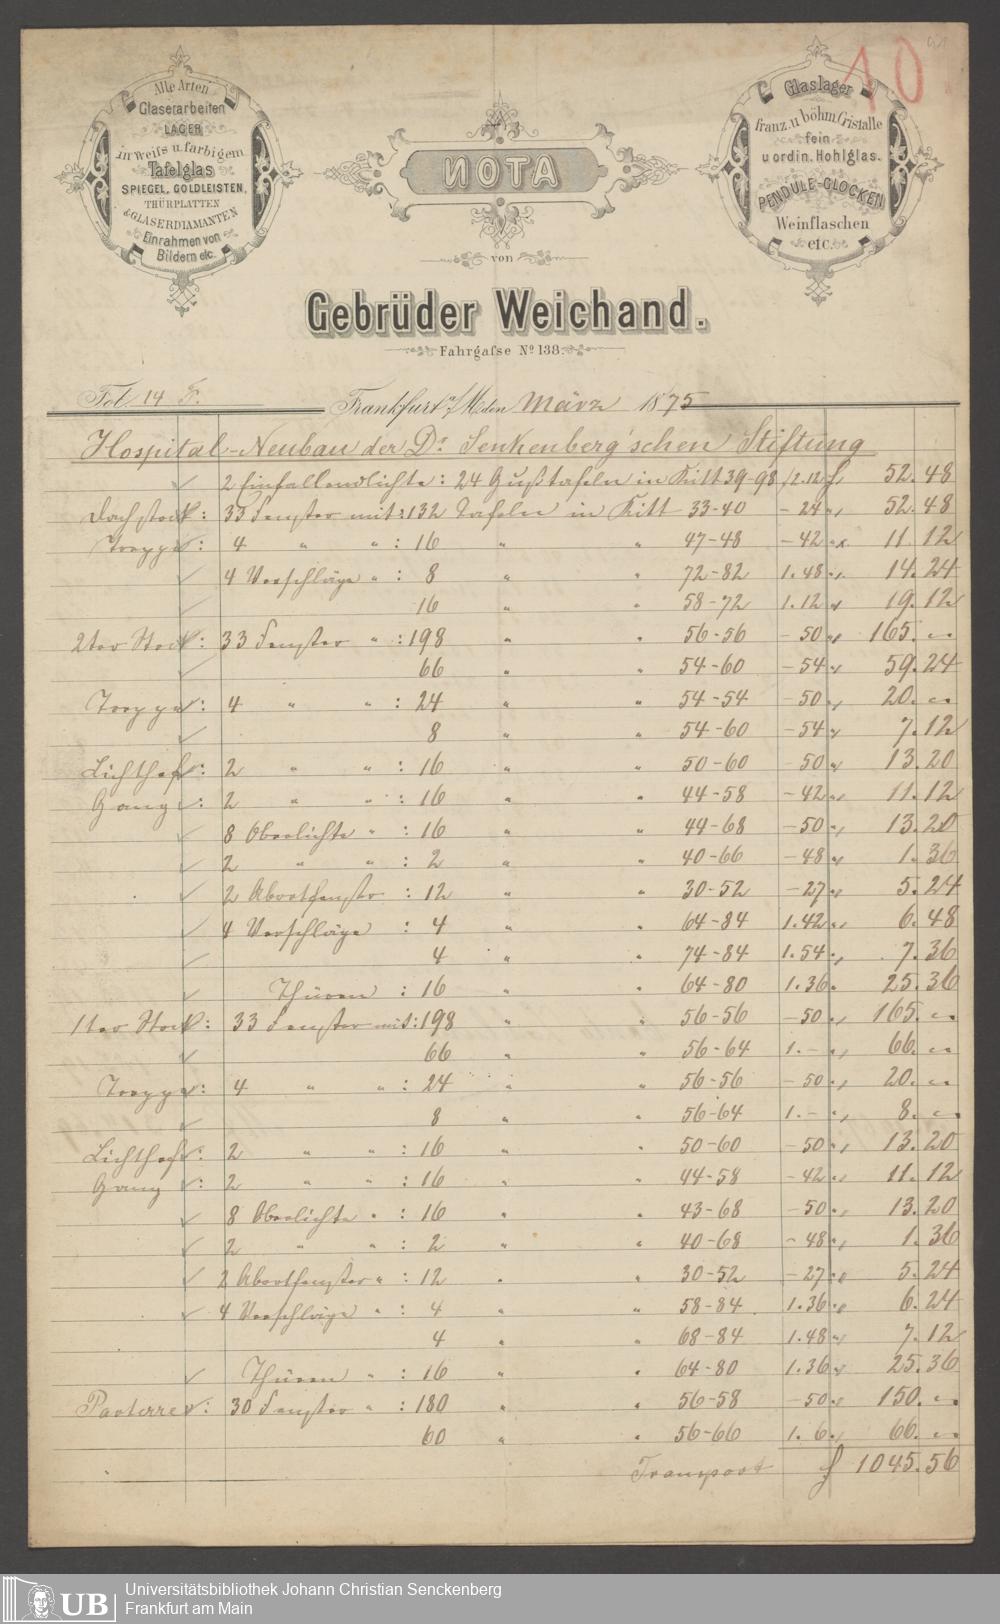 Alle Arten
Glaserarbeiten
LAGER
in weiſs u. farbigem
Tafelglas
SPIEGEL, GOLDLEISTEN,
THÜRPLATTEN
& GLASERDIAMANTEN
Einrahmen von
Bildern etc.
NOTA
Glaslager
franz. u. böhm. Cristalle
fein
u ordin. Hohlglas.
PENDULE-GLOCKEN
Weinflaschen
etc.
10
von
Gebrüder Weichand.
Fahrgaſse No 138.
Fol. 14 F.
Frankfurt a/M den März 1875
Hospital-Neubau der Dr. Senkenberg'schen Stiftung
2 Einfallendlichte: 24 Gußtafeln in Kitt 39-98 /2.12 f 52.48
Dachstock: 33 Fenster mit: 132 Tafeln in Kitt 33-40 - 24 " 52.48
Treppe: 4 " " : 16 " " 47-48 - 42 " 11.12
4 Verschläge " : 8 " " 72-82 1.48 " 14.24
16 " " 58-72 1.12 " 19.12
2ter Stock: 33 Fenster " : 198 " " 56-56 - 50 " 165. "
66 " " 54-60 - 54 " 59.24
Treppe: 4 " " : 24 " " 54-54 - 50 " 20. "
8 " " 54-60 - 54 " 7.12
Lichthof: 2 " " : 16 " " 50-60 50 " 13.20
Gang: 2 " " : 16 " " 44-58 - 42 " 11.12
8 Oberlichte " : 16 " " 44-68 - 50 " 13.20
2 " " : 2 " " 40-66 - 48 " 1.36
2 Abortfenster : 12 " " 30-52 - 27 " 5.24
4 Verschläge : 4 " " 64-84 1.42 " 6.48
4 " " 74-84 1.54 " 7.36
Thüren : 16 " " 64-80 1.36 " 25.36
1ter Stock: 33 Fenster mit: 198 " " 56-56 - 50 " 165. "
66 " " 56-64 1. - " 66. "
Treppe: 4 " " : 24 " " 56-56 - 50 " 20. "
8 " " 56-64 1. - " 8. "
Lichthof: 2 " " : 16 " " 50-60 - 50 " 13.20
Gang: 2 " " : 16 " " 44-58 - 42 " 11.12
8 Oberlichte " : 16 " " 43-68 - 50 " 13.20
2 " " : 2 " " 40-68 - 48 " 1.36
2 Abortfenster " : 12 " " 30-52 - 27 " 5.24
4 Verschläge " : 4 " " 58-84 1.36 " 6.24
4 " " 68-84 1.48 " 7.12
Thüren " : 16 " " 64-80 1.36 " 25.36
Parterre: 30 Fenster " : 180 " " 56-58 - 50 " 150. "
60 " " 56-66 1.6 " 66. "
Transport f 1045.56
UB
Universitätsbibliothek Johann Christian Senckenberg
Frankfurt am Main